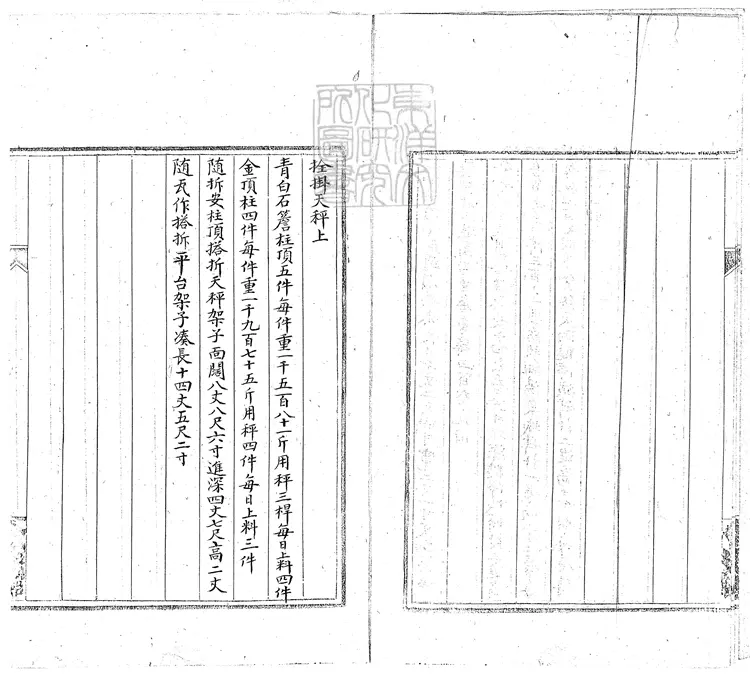 拴掛天秤上
青白石簷柱頂五件每件重一千五百八十一斤用秤三桿每日上料四件
金頂柱四件每件重一千九百七十五斤用秤四件每日上料三件
隨拆安柱頂搭拆天秤架子面闊八丈八尺六寸進深四丈七尺高二丈
随瓦作搭拆平台架子湊長十四丈五尺二寸